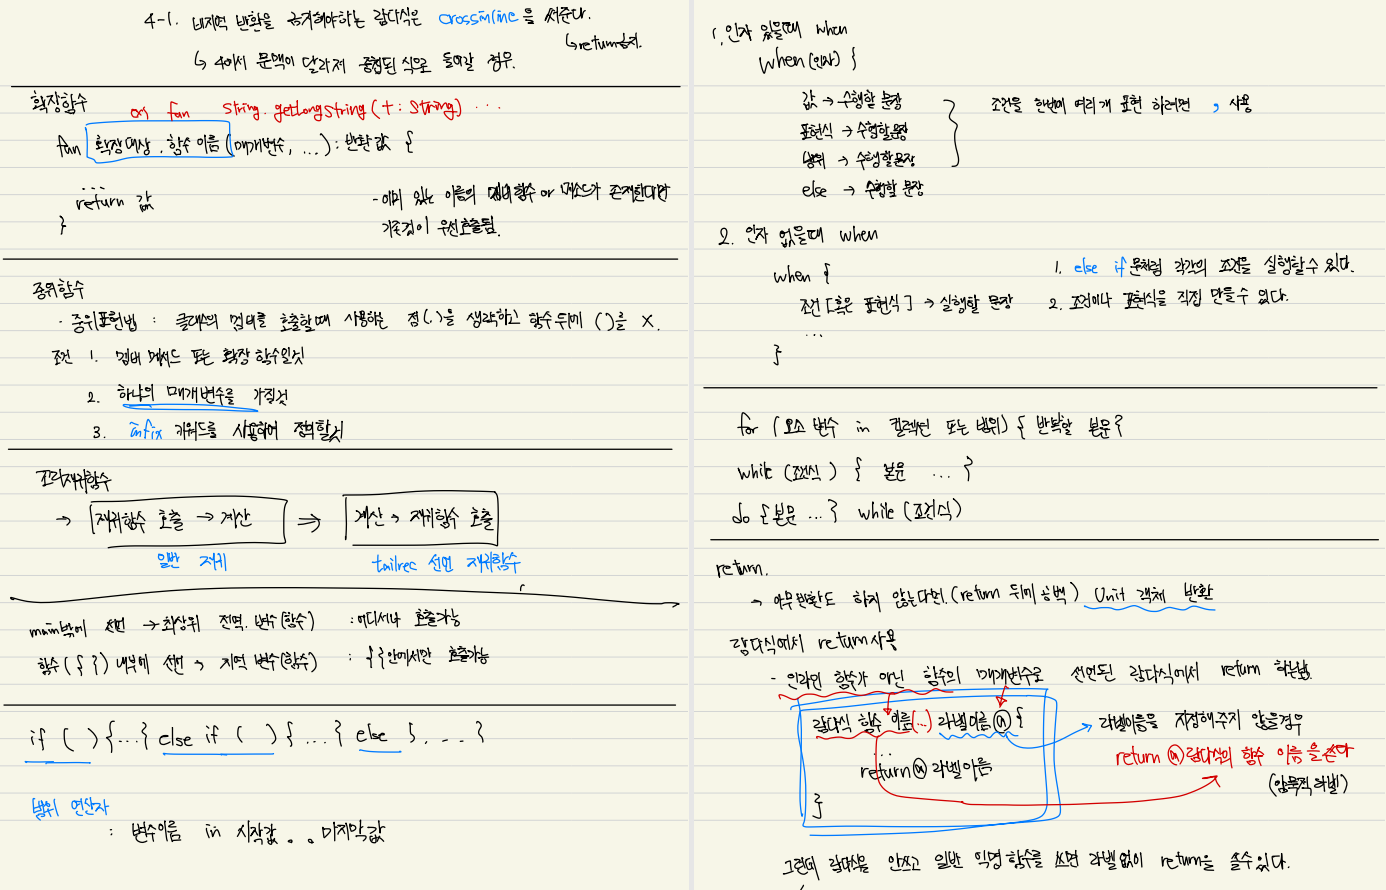 4-1. 비지역 반환을 금지해야하는 람다식은 crossinline을 써준다.
↳return금지.
↳ 4에서 문맥이 달라져 중첩된 식으로 들어갈 경우.
확장함수
ex) fun String.getLongString(t: String) ...
fun 확장대상.함수이름(매개변수, ...): 반환값 {
...
return 값
}
- 이미 있는 이름의 멤버함수 or 메소드가 존재한다면
기존것이 우선호출됨.
중위함수
· 중위표현법 : 클래스의 멤버를 호출할때 사용하는 점(.)을 생략하고 함수 뒤에 ( )를 X.
조건 1. 멤버 메서드 또는 확장 함수일것
2. 하나의 매개변수를 가질것
3. infix 키워드를 사용하여 정의할것
꼬리재귀함수
→ 재귀함수 호출 → 계산 ⇒ 계산 → 재귀함수 호출
일반 재귀
tailrec 선언 재귀함수
main밖에 선언 → 최상위 전역. 변수(함수) : 어디서나 호출가능
함수({ }) 내부에 선언 → 지역 변수(함수) : { }안에서만 호출가능
if ( ) {...} else if ( ) {...} else {...}
범위 연산자
: 변수이름 in 시작값..마지막값
1. 인자 있을때 when
when(인자) {
값 → 수행할 문장
표현식 → 수행할문장
범위 → 수행할문장
else → 수행할 문장
조건을 한번에 여러개 표현 하려면 , 사용
2. 인자 없을때 when
when {
조건 [혹은 표현식] → 실행할 문장
...
}
1. else if문처럼 각각의 조건을 실행할수 있다.
2. 조건이나 표현식을 직접 만들수 있다.
for (요소 변수 in 컬렉션 또는 범위) { 반복할 본문 }
while (조건식) { 본문 ... }
do {본문 ...} while (조건식)
return.
→ 아무반환도 하지 않는다면.(return 뒤에 공백) Unit 객체 반환
람다식에서 return사용
- 인라인 함수가 아닌 함수의 매개변수로 선언된 람다식에서 return 하는법.
람다식 함수 이름(...) 라벨이름@ {
...
return@라벨이름
}
라벨이름을 지정해주지 않을경우
return @람다식의 함수 이름을 쓴다
(암묵적 라벨)
그런데 람다식을 안쓰고 일반 익명 함수를 쓰면 라벨없이 return을 쓸수있다.